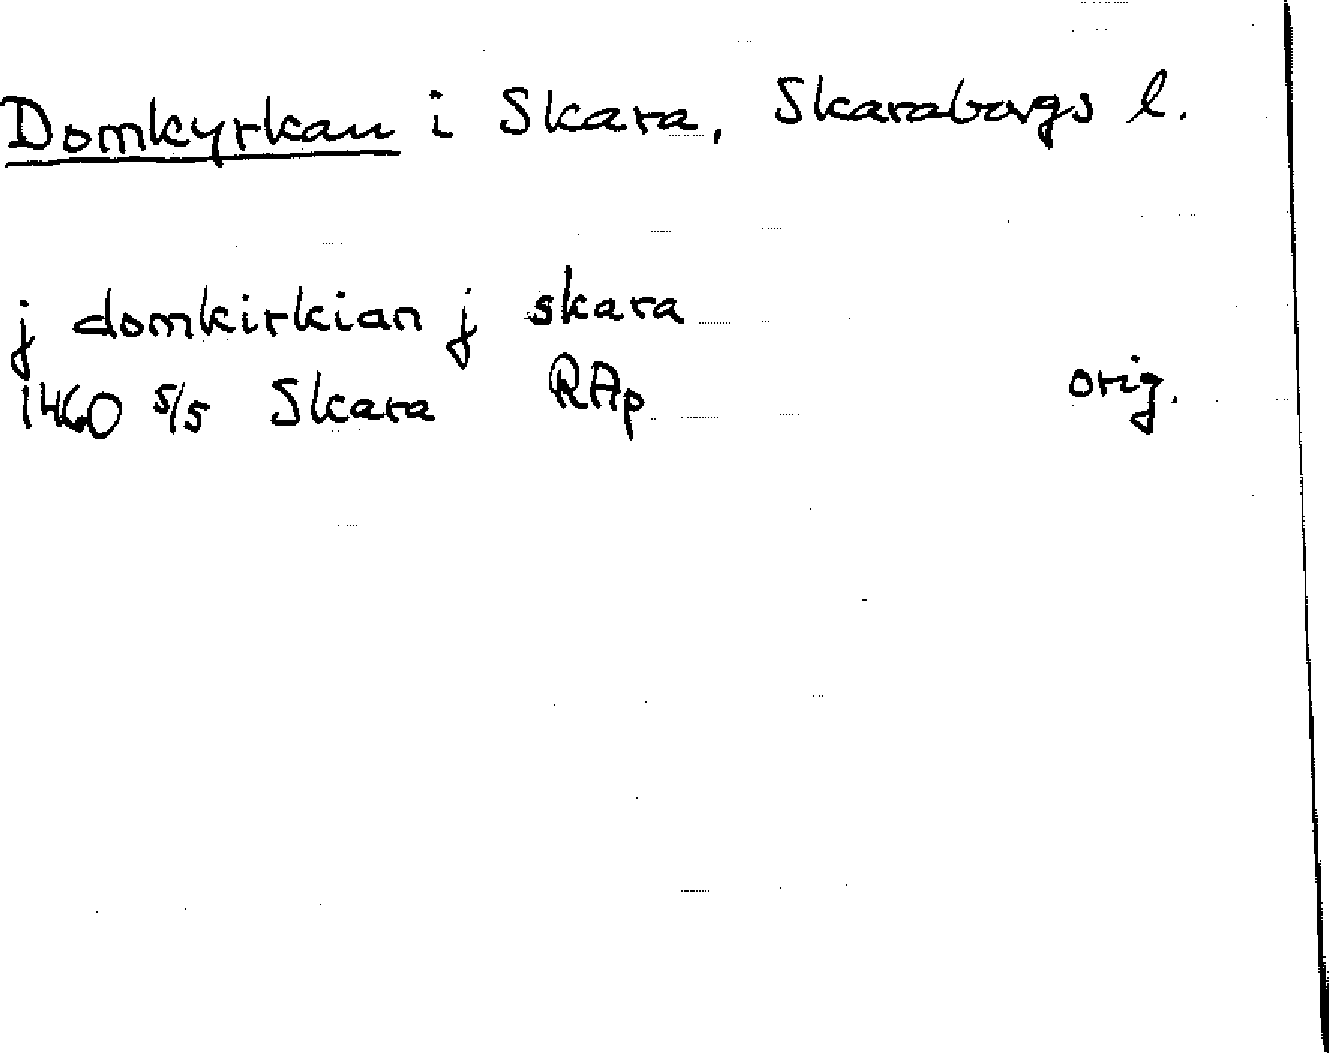 Domkyrkan i Skara, Skaraborgs l.
j domkirkian j skara
1460 5/5 Skara RAp orig.